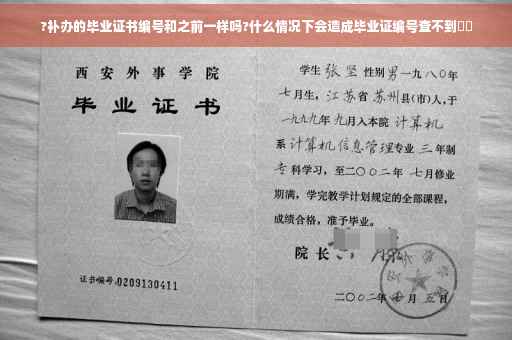 ?补办的毕业证书编号和之前一样吗?什么情况下会造成毕业证编号查不到
西安外事学院
毕业证书
证书编号:0209130411
学生 张坚 性别男一九八〇年
七月生,江苏省苏州县(市)人,于
一九九九年九月入本院 计算机
系计算机信息管理专业 三年制
专科学习,至二〇〇二年 七月修业
期满,学完教学计划规定的全部课程,
成绩合格,准予毕业。
院长
二〇〇二年 月五日